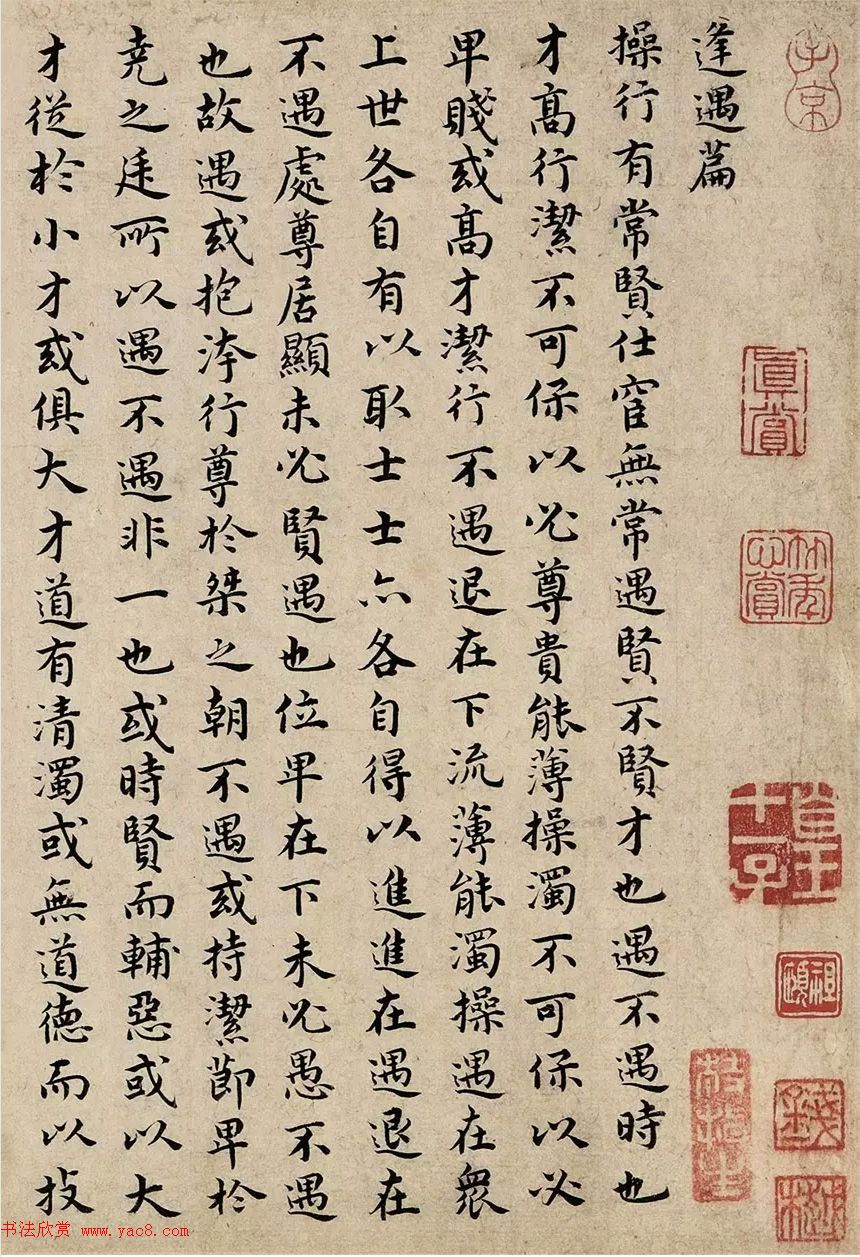 逢遇篇
操行有常賢仕宦無常遇賢不賢才也遇不遇時也
才高行潔不可保以必尊貴能薄操濁不可保以必
卑賤或高才潔行不遇退在下流薄能濁操遇在衆
上世各自有以取士士亦各自得以進進在遇退在
不遇處尊居顯未必賢遇也位卑在下未必愚不遇
也故遇或抱洿行尊於桀之朝不遇或持潔節卑於
尭之廷所以遇不遇非一也或時賢而輔惡或以大
才從於小才或俱大才道有清濁或無道德而以技
真賞
書法欣賞 www.yac8.com